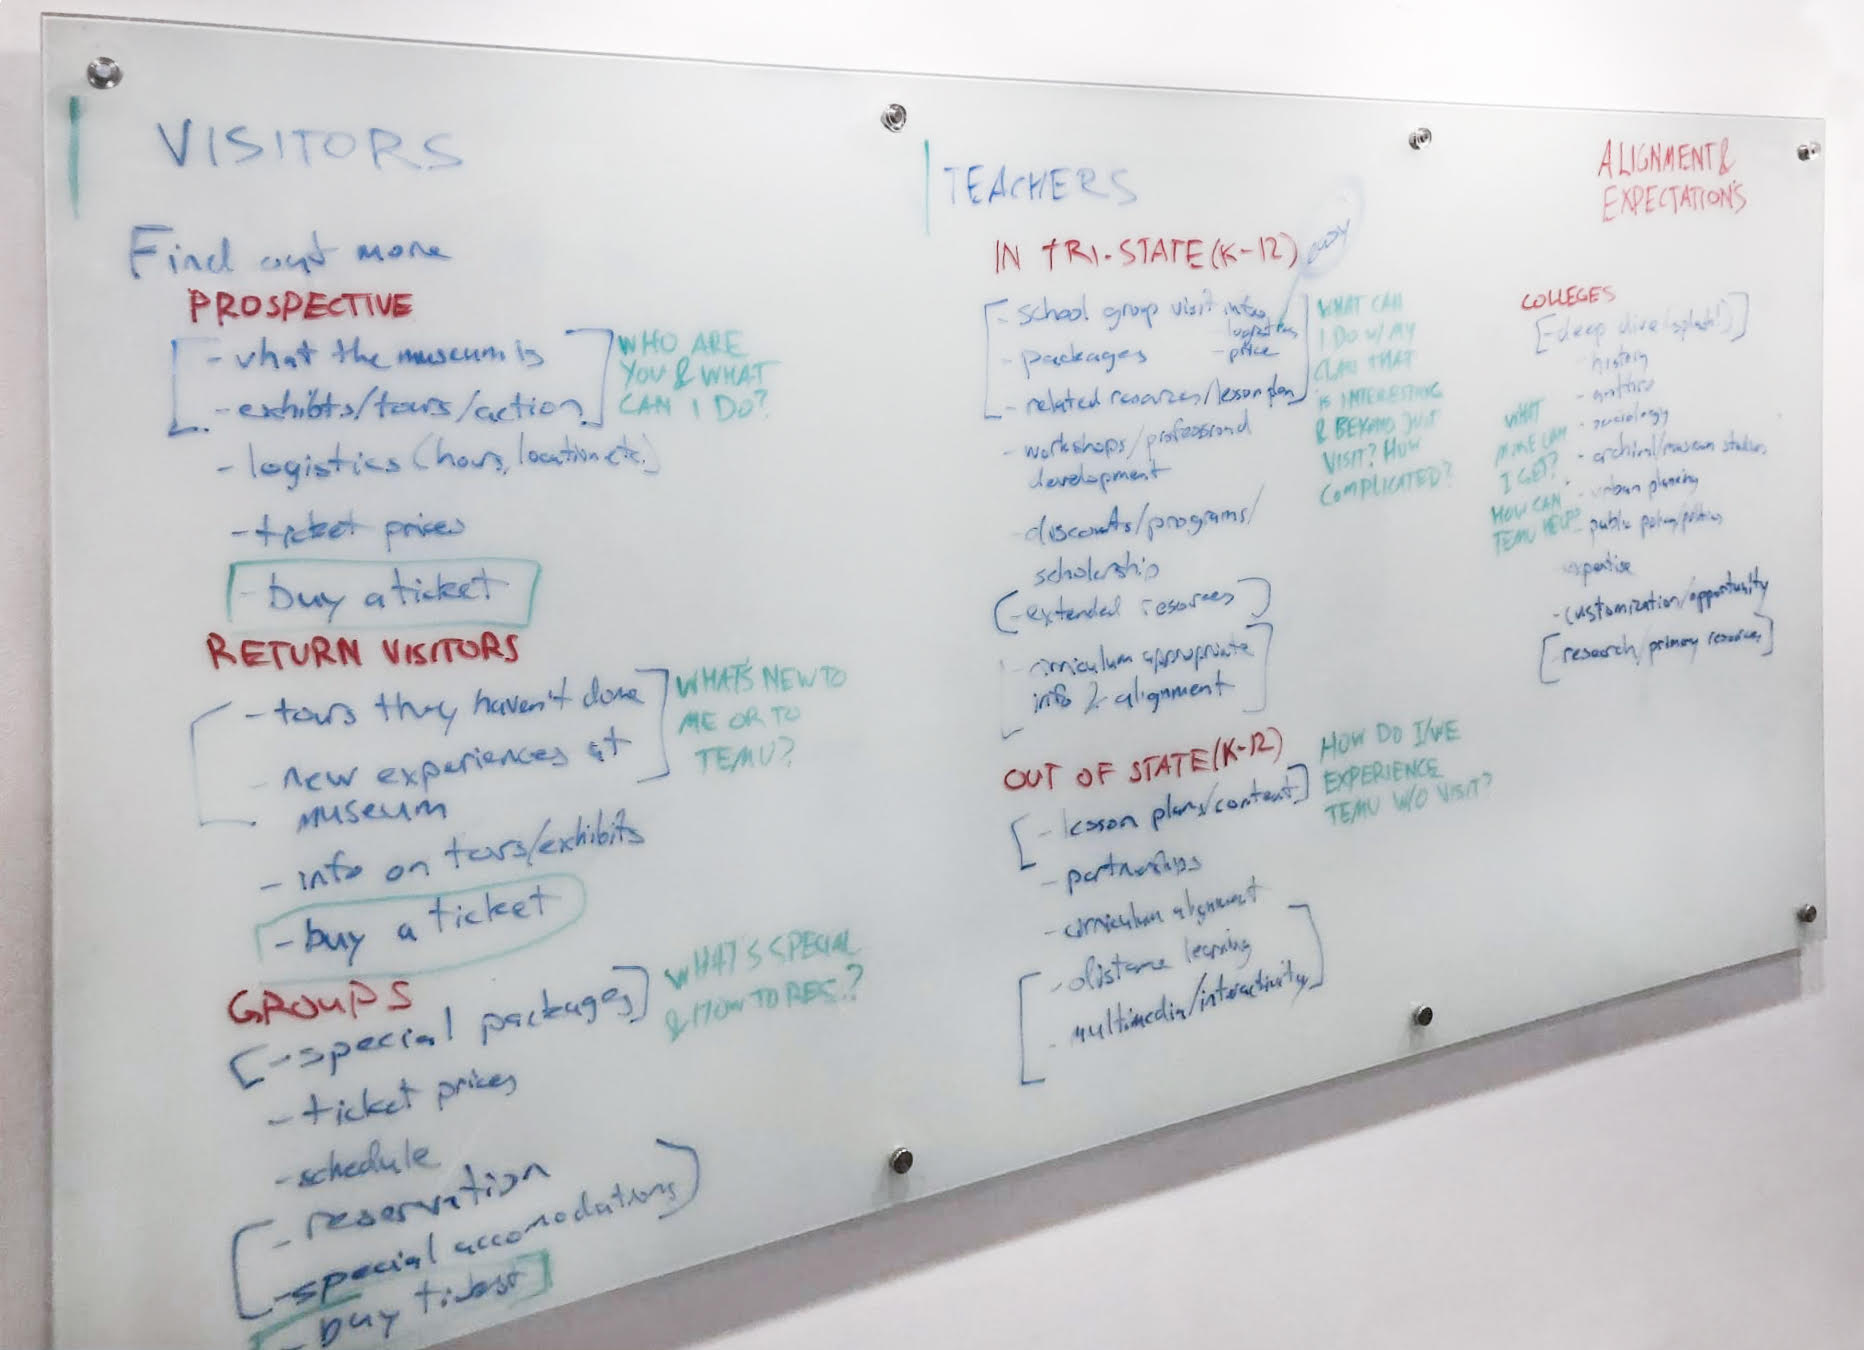 VISITORS
Find out more
PROSPECTIVE
- what the museum is
- exhibts/tours/action
WHO ARE
YOU & WHAT
CAN I DO?
- logistics (hours, location etc.)
- ticket prices
- buy a ticket
RETURN VISITORS
- tours they haven't done
- new experiences at
museum
WHAT'S NEW TO
ME OR TO
TEMU?
- info on tours/exhibits
- buy a ticket
GROUPS
- special packages
WHAT'S SPECIAL
& HOW TO RES.?
- ticket prices
- schedule
- reservation
- special accomodations
- buy ticket
TEACHERS
IN TRI-STATE (K-12)
easy
- school group visit intro
- logistics
- price
- packages
- related resources/lesson plan
WHAT CAN
I DO W/ MY
CLASS THAT
IS INTERESTING
& BEYOND JUST
VISIT? HOW
COMPLICATED?
- workshops/professional
development
- discounts/programs/
scholarship
- extended resources
- curriculum appropriate
info & alignment
OUT OF STATE (K-12)
- lesson plans/content
HOW DO I/WE
EXPERIENCE
TEMU W/O VISIT?
- partnerships
- curriculum alignment
- distance learning
- multimedia/interactivity
ALIGNMENT &
EXPECTATIONS
COLLEGES
- deep dive (splash!)
- history
- anthro
- sociology
- archival/museum studies
- urban planning
- public policy/politics
WHAT
MORE CAN
I GET?
HOW CAN
TEMU HELP?
expertise
- customization/opportunity
- research/primary resources